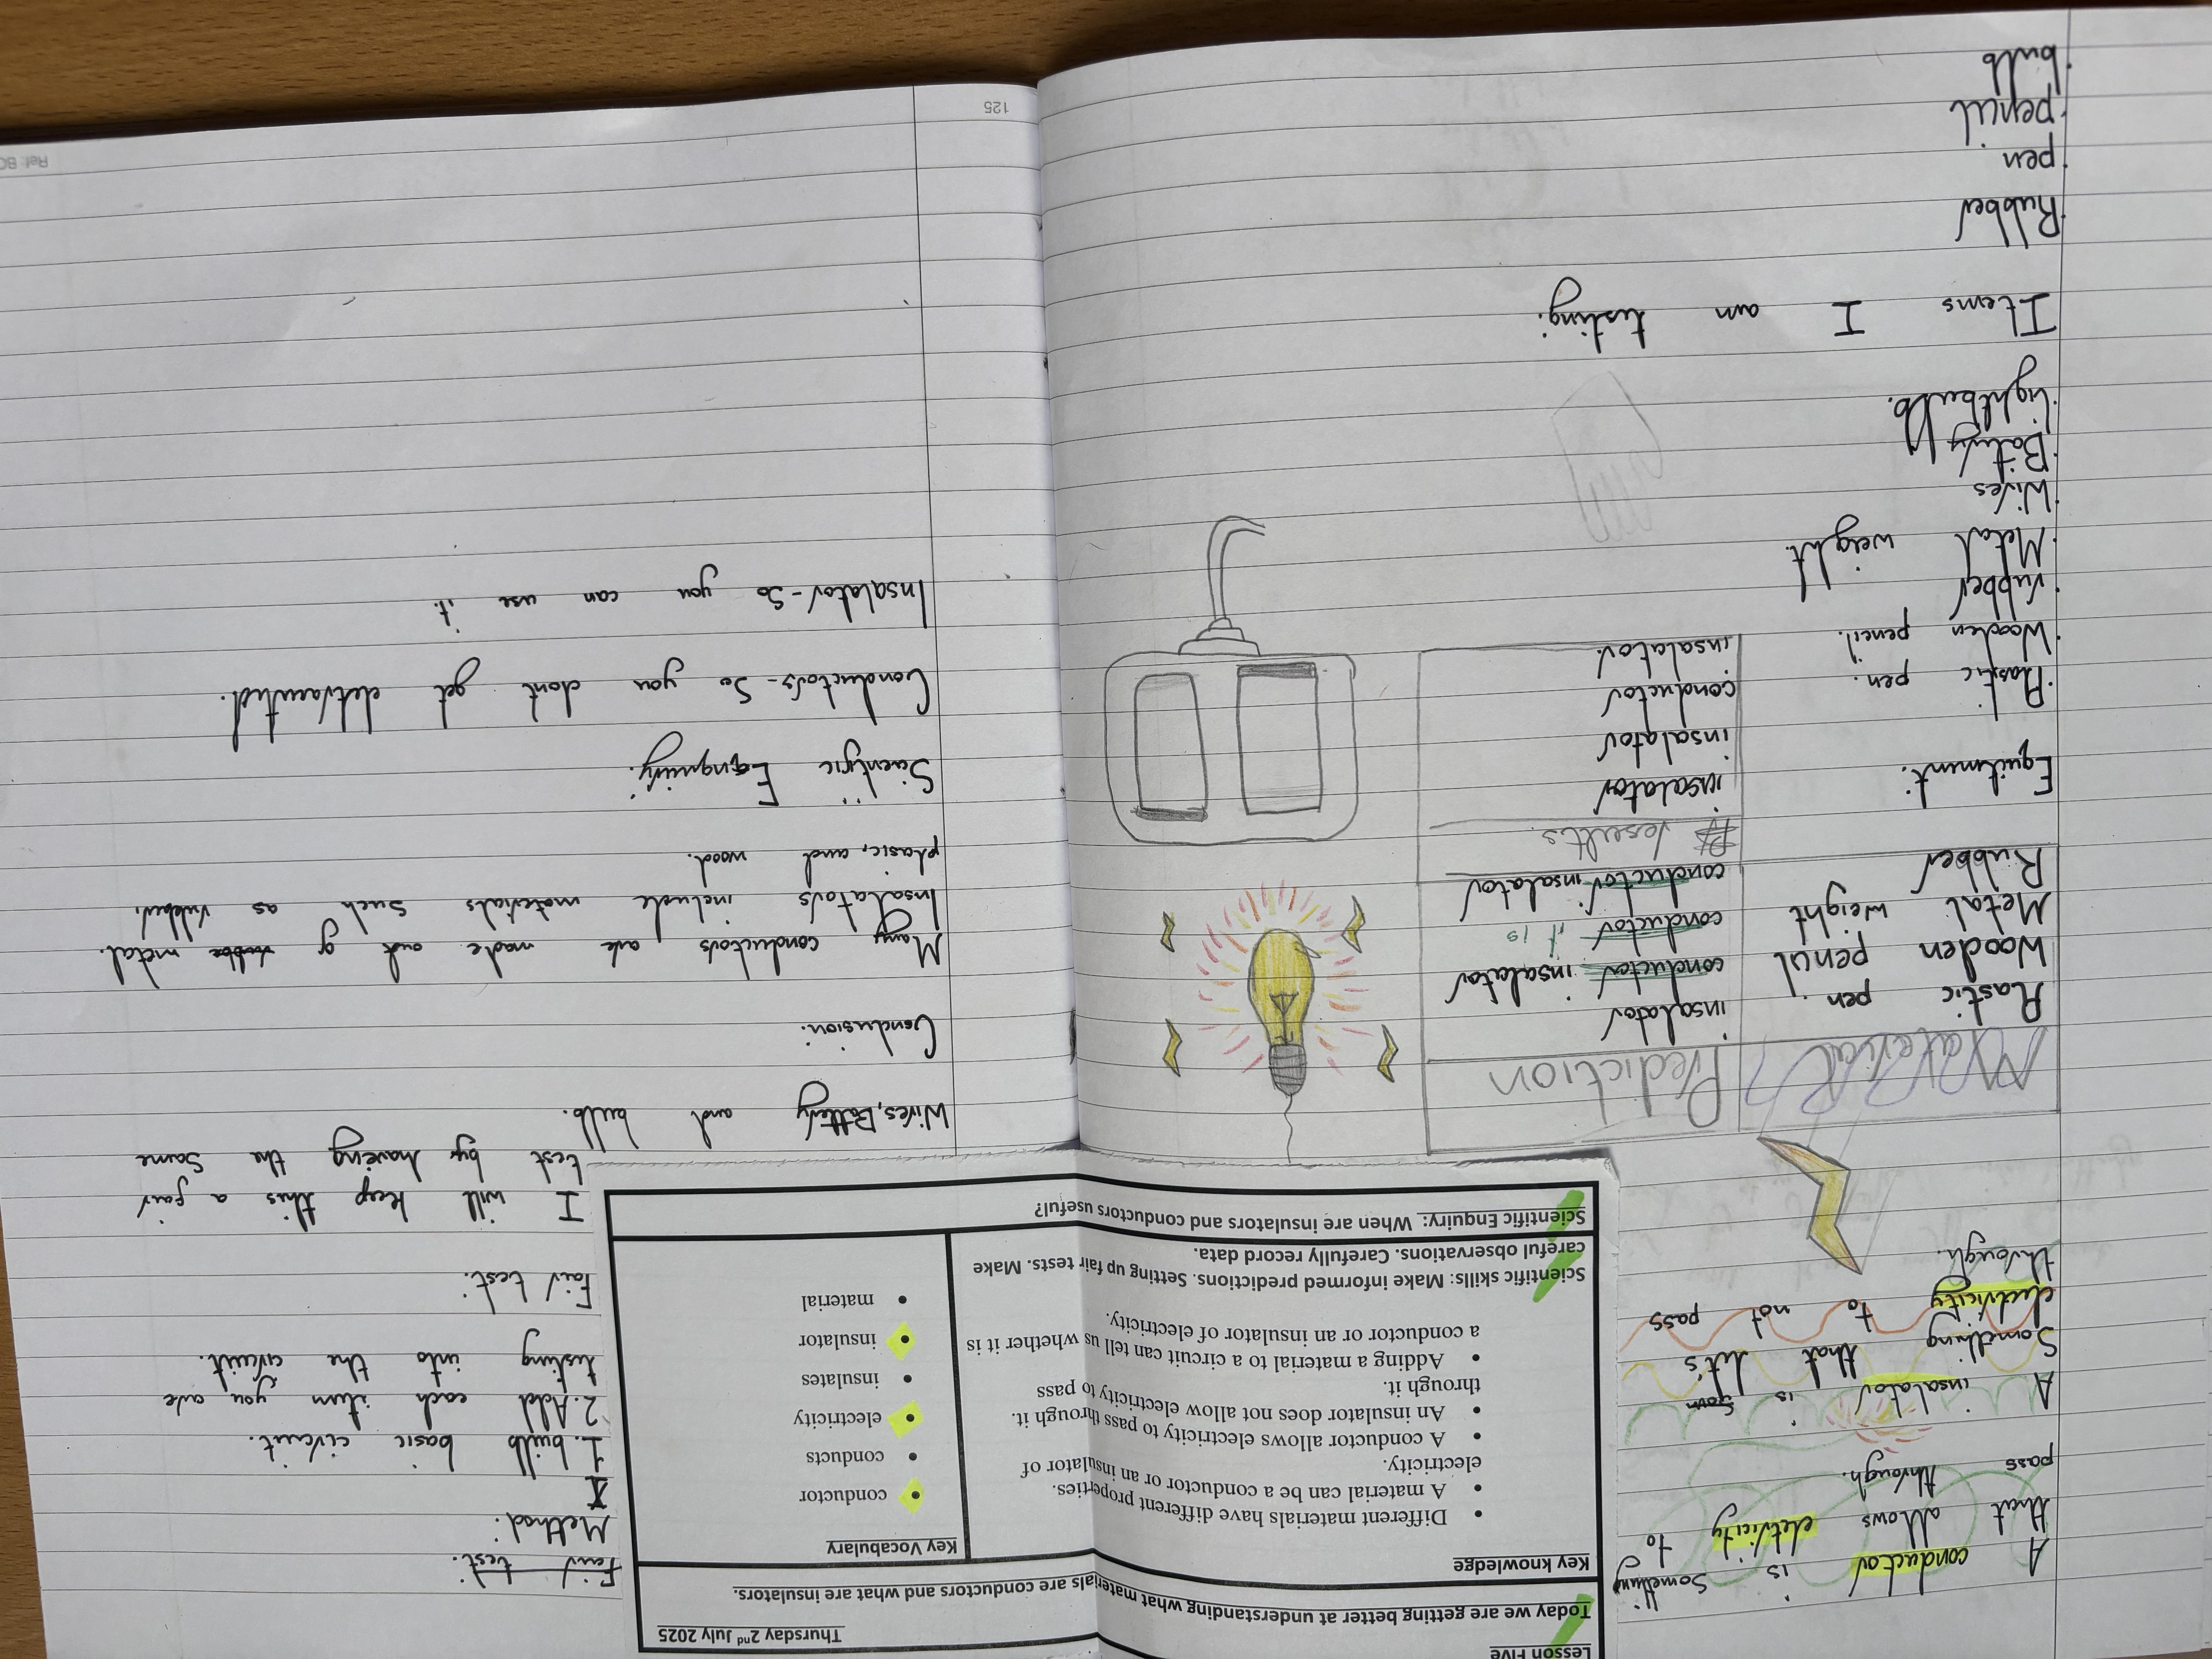 A conductor is something
that allows eletricity to
pass through.
A insalator is
Something that let's
electricity to not pass
through.
Lesson Five
Thursday 2nd July 2025
Today we are getting better at understanding what materials are conductors and what are insulators.
Key knowledge
• Different materials have different properties.
• A material can be a conductor or an insulator of
electricity.
• A conductor allows electricity to pass through it.
• An insulator does not allow electricity to pass
through it.
• Adding a material to a circuit can tell us whether it is
a conductor or an insulator of electricity.
Key Vocabulary
• conductor
• conducts
• electricity
• insulates
• insulator
• material
Scientific skills: Make informed predictions. Setting up fair tests. Make
careful observations. Carefully record data.
Scientific Enquiry: When are insulators and conductors useful?
Material Prediction
Plastic pen insalator
Wooden pencil conductor insalator
Metal weight conductor it is
Rubber conductor insalator
reseults
insalator
insalator
conductor
insalator.
Equitment:
• Plastic pen.
• Wooden pencil.
• rubber
• Metal weight.
• Wires
• Battry
• lightbulb.
Items I am testing:
• Rubber
• pen
• pencil
• bulb
Fair test:
Method:
1. built basic circuit.
2. Add each item you are
testing into the circuit.
Fair test:
I will keep this a fair
test by having the same
Wires, Battery and bulb.
Conclusion:
Many conductors are made out of metal.
Insalators include materials such as rubber,
plasic, and wood.
Scientific Enquiry:
Conductors - So you dont get eletracuted.
Insalator - So you can use it.
125